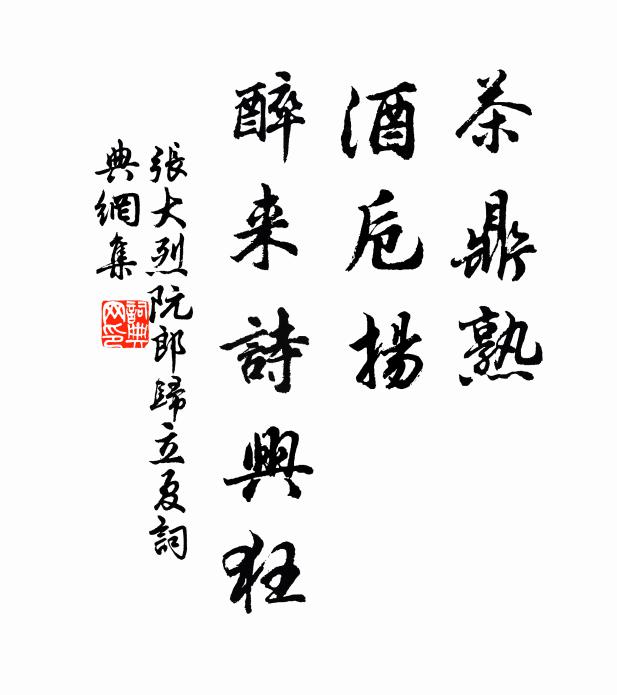 茶鼎熟
酒卮揚
醉来詩興狂
張大烈阮郎歸立夏詞
典網集
詞典
网印